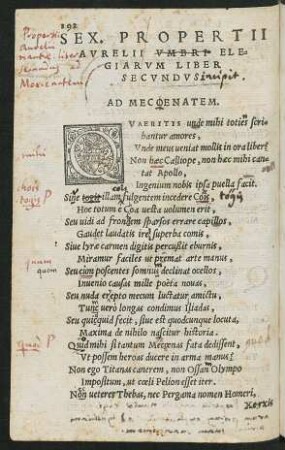 SEX. PROPERTII
AVRELII VMBRI ELE-
GIARVM LIBER
SECVNDVS incipit
AD MECOENATEM.
QVAERITIS unde mihi toties scri
bantur amores,
Vnde meus ueniat mollis in ora liber?
Non hæc Calliope, non hæc mihi can
tat Apollo,
Ingenium nobis ipsa puella facit.
mihi
cois
Siue togis illam fulgentem incedere Cois,
togis
Hoc totum e Coa ueste uolumen erit,
Seu uidi ad frontem sparsos errare capillos,
Gaudet laudatis ire superba comis,
Siue lyræ carmen digitis percussit eburnis,
Miramur faciles ut premat arte manus,
quum
Seu cum poscentes somnum declinat ocellos,
quom
Inuenio causas mille poëta nouas,
Seu nuda erepto mecum luctatur amictu,
Tunc uero longas condimus Iliadas,
Seu quicquid fecit, siue est quodcunque locuta,
Maxima de nihilo nascitur historia.
Quod mihi si tantum Mecœnas fata dedissent,
Vt possem heroas ducere in arma manus?
Non ego Titanas canerem, non Ossan Olympo
Impositum, ut cœli Pelion esset iter.
Non ueteres Thebas, nec Pergama nomen Homeri,